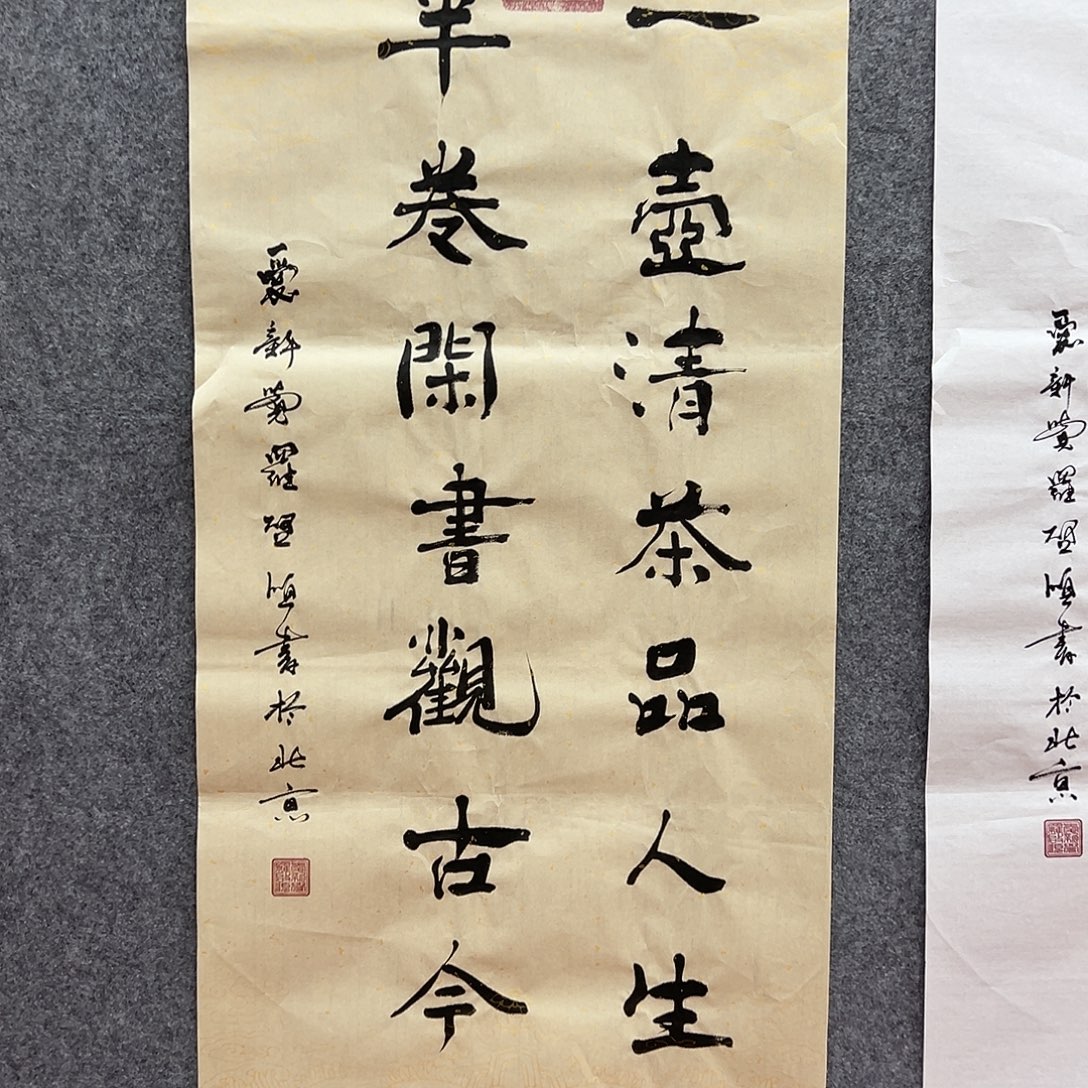 一壺清茶品人生
半卷閑書觀古今
愛新覺羅啓恒書於北京
愛新覺羅啓恒書於北京